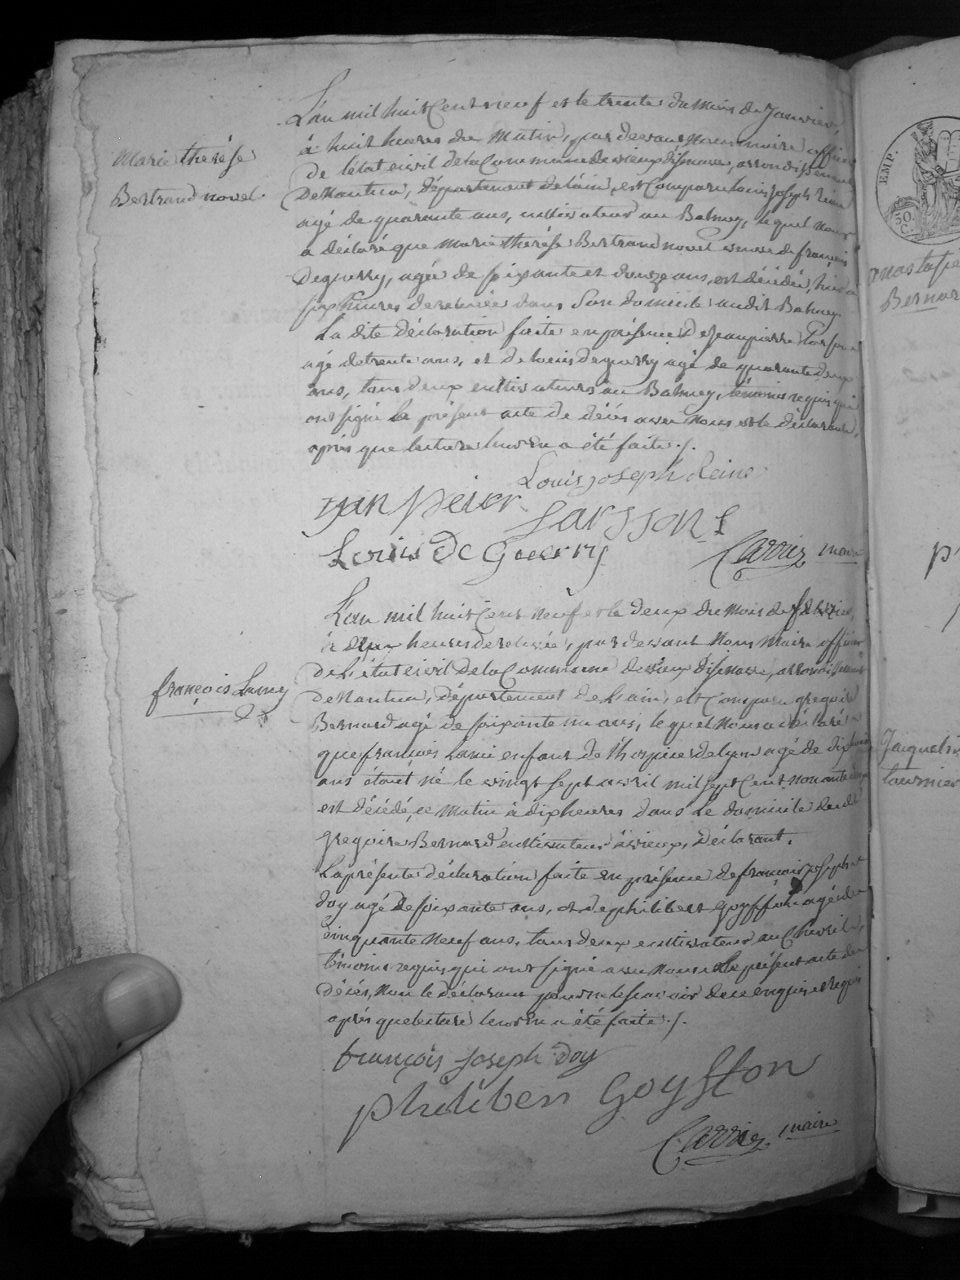 Marie therése
Bertrand novel.
L'an mil huit Cent neuf et le trente du mois de Janvier,
à huit heures du Matin, par devant Nous maire officier
De l'état civil de la Commune de vieux d'Isenave, arrondissement
De Nantua, Département de l'ain, est Comparu Louis joseph Reine
agé de quarante ans, cultivateur au Balmey, lequel nous
a déclaré que marie thérése Bertrand novel veuve de françois
Deguerry, agée de soixante et douze ans, est décédée, hier à
six heures de relevée dans Son domicile audit Balmey.
La dite déclaration faite en présence de Jean pierre
agé de trente ans, et de Louis deguerry agé de quarante deux
ans, tous deux cultivateurs au Balmey, témoins requis qui
ont signé Le présent acte de décés avec Nous et le déclarant,
après que lecture leur en a été faite ./.
Louis joseph Reine
jan peier
sarsson
Louis De Guerry
Carrier maire
françois Lamy
L'an mil huit Cent neuf et le deux du mois de février,
à deux heures de relevée, par devant Nous Maire officier
De L'état civil De la Commune de vieux d'isenave, arrondissement
de Nantua, Département de L'ain, est Comparu gregoire
Bernard agé de soixante un ans, lequel Nous a déclaré
que françois Lami enfant de l'hospice de Lyon agé de dix huit
ans étant né le vingt sept avril mil sept Cent nonante
est décédé, ce Matin à dix heures dans Le domicile dudit
gregoire Bernard cultivateur à vieux, déclarant.
La présente déclaration faite en présence de françois joseph
doy agé De soixante ans, et de philibert Goyffon agé de
cinquante Neuf ans, tous deux cultivateurs au Chevril,
témoins requis qui ont signé avec Nous Le présent acte de
décés, Non le déclarant pour ne le savoir de ce enquis et requis
après que lecture leur en a été faite ./.
françois joseph doy
philibert Goyffon
Carrier maire
EMP.
30.
C.
anastasie
Bernard
Jaqueline
tournier